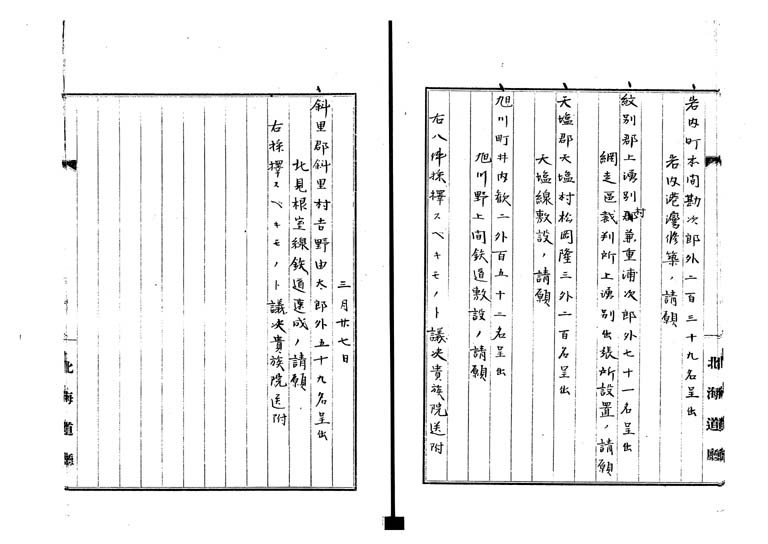 岩内町本間勘次郎外二百三十九名呈出
岩内港湾修築ノ請願
紋別郡上湧別村兼重浦次郎外七十一名呈出
網走区裁判所上湧別出張所設置ノ請願
天塩郡天塩村松岡隆三外二百名呈出
天塩線敷設ノ請願
旭川町井内歓二外百五十二名呈出
旭川野上間鉄道敷設ノ請願
右八件採擇スヘキモノト議決貴族院送附
北海道廳
三月廿七日
斜里郡斜里村吉野由太郎外五十九名呈出
北見根室線鉄道速成ノ請願
右採擇スベキモノト議決貴族院送附
北海道廳